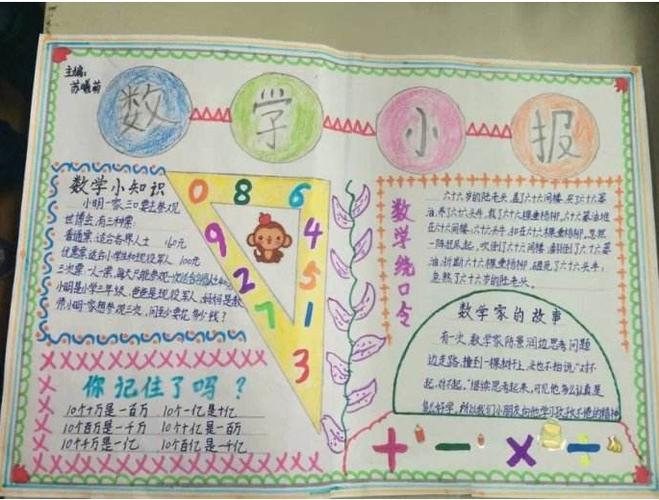 主编:
苏曦萌
数 学 小 报
数学小知识
小明一家三口要去参观
世博会,有三种票:
普通票:适合各界人士 160元
优惠票:适合小学生和现役军人 100元
三次票:一人一票,每人只能参观一次
小明是小学三年级,爸爸是现役军人,妈妈是教
带小明一家想参观三次,问至少要花多少钱?
0 8 6
9 4
2 5
7 1
3
你记住了吗?
10个十万是一百万 10个一亿是十亿
10个百万是一千万 10个十亿是一百亿
10个千万是一亿 10个百亿是一千亿
数学绕口令
六十六岁的陆老头,盖了六十六间楼,买了六十六篓
油,养了六十六头牛,栽了六十六棵垂杨柳,六十六篓油堆
在六十六间楼,六十六头牛,扣在六十六棵垂杨柳,忽然
一阵狂风起,吹倒了六十六间楼,翻倒了六十六篓
油,折断六十六棵垂杨柳,砸死了六十六头牛,
急煞了六十六岁的陆老头。
数学家的故事
有一次,数学家陈景润边思考问题
边走路,撞到一棵树干上,头也不抬说:“对不
起,对不起。”继续思考起来,可见他多么认真是
+ − × ÷